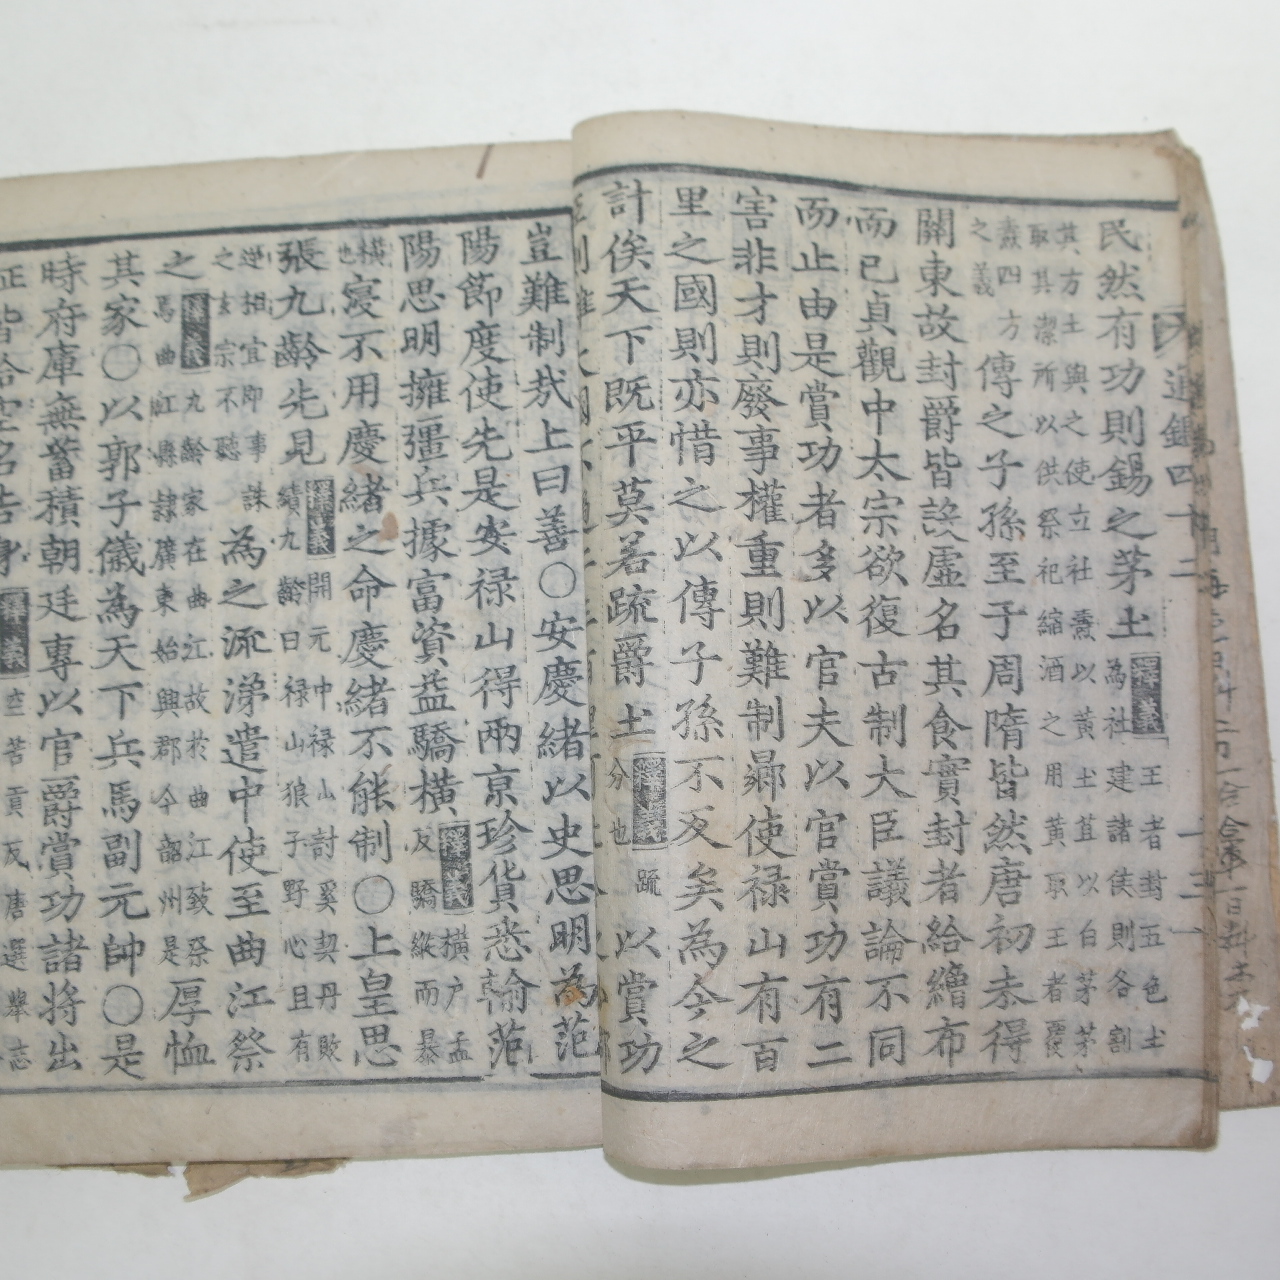 通鑑四十二
民然有功則錫之茅土釋義王者封五色土
為社建諸侯則各割
其方土與之使立社燾以黃土苴以白茅茅
取其潔所以供祭祀縮酒之用黃取王者覆
燾四方
之義
傳之子孫至于周隋皆然唐初未得
關東故封爵皆設虛名其食實封者給繒布
而已貞觀中太宗欲復古制大臣議論不同
而止由是賞功者多以官夫以官賞功有二
害非才則廢事權重則難制曏使祿山有百
里之國則亦惜之以傳子孫不反矣為今之
計俟天下既平莫若疏爵土釋義疏
分也
以賞功
豈難制哉上曰善〇安慶緒以史思明為范
陽節度使先是安祿山得兩京珍貨悉輸范
陽思明擁彊兵據富資益驕橫釋義橫戶孟
反驕縱而暴
橫
也
寖不用慶緒之命慶緒不能制〇上皇思
張九齡先見釋義開元中祿山討奚契丹敗
績九齡曰祿山狼子野心且有
逆相宜即事誅
之玄宗不聽
為之流涕遣中使至曲江祭
之釋義九齡家在曲江故於曲江致祭
焉曲江縣隷廣東始興郡今韶州是
厚恤
其家〇以郭子儀為天下兵馬副元帥〇是
時府庫無蓄積朝廷專以官爵賞功諸將出
征皆給空名告身釋義空苦貢反唐選舉志